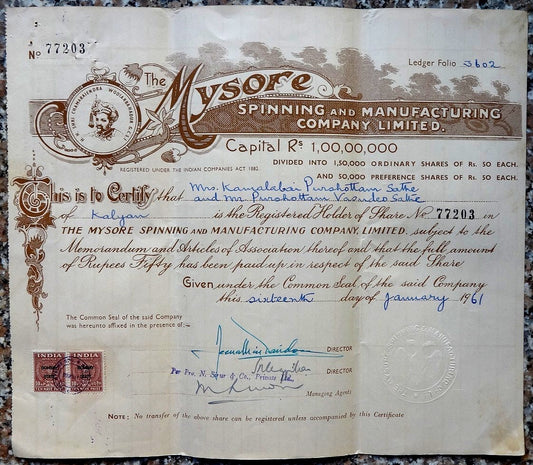 No 77203
Ledger Folio 3602
The Mysore
SPINNING AND MANUFACTURING
COMPANY LIMITED.
Capital Rs 1,00,00,000
DIVIDED INTO 1,50,000 ORDINARY SHARES OF Rs. 50 EACH.
AND 50,000 PREFERENCE SHARES OF Rs. 50 EACH.
REGISTERED UNDER THE INDIAN COMPANIES ACT 1882
This is to Certify that Mrs. Kamalabai Purshottam Sathe
and Mr. Purshottam Vasudeo Sathe
of Kalyan is the Registered Holder of Share No 77203 in
THE MYSORE SPINNING AND MANUFACTURING COMPANY, LIMITED. subject to the
Memorandum and Articles of Association thereof and that the full amount
of Rupees Fifty has been paid up in respect of the said Share
Given under the Common Seal of the said Company
this sixteenth day of January 1961
The Common Seal of the said Company
was hereunto affixed in the presence of:
DIRECTOR
DIRECTOR
Per Pro. N. Sirur & Co., Private Ltd.
Managing Agents
INDIA INDIA
NOTE: No transfer of the above share can be registered unless accompanied by this Certificate